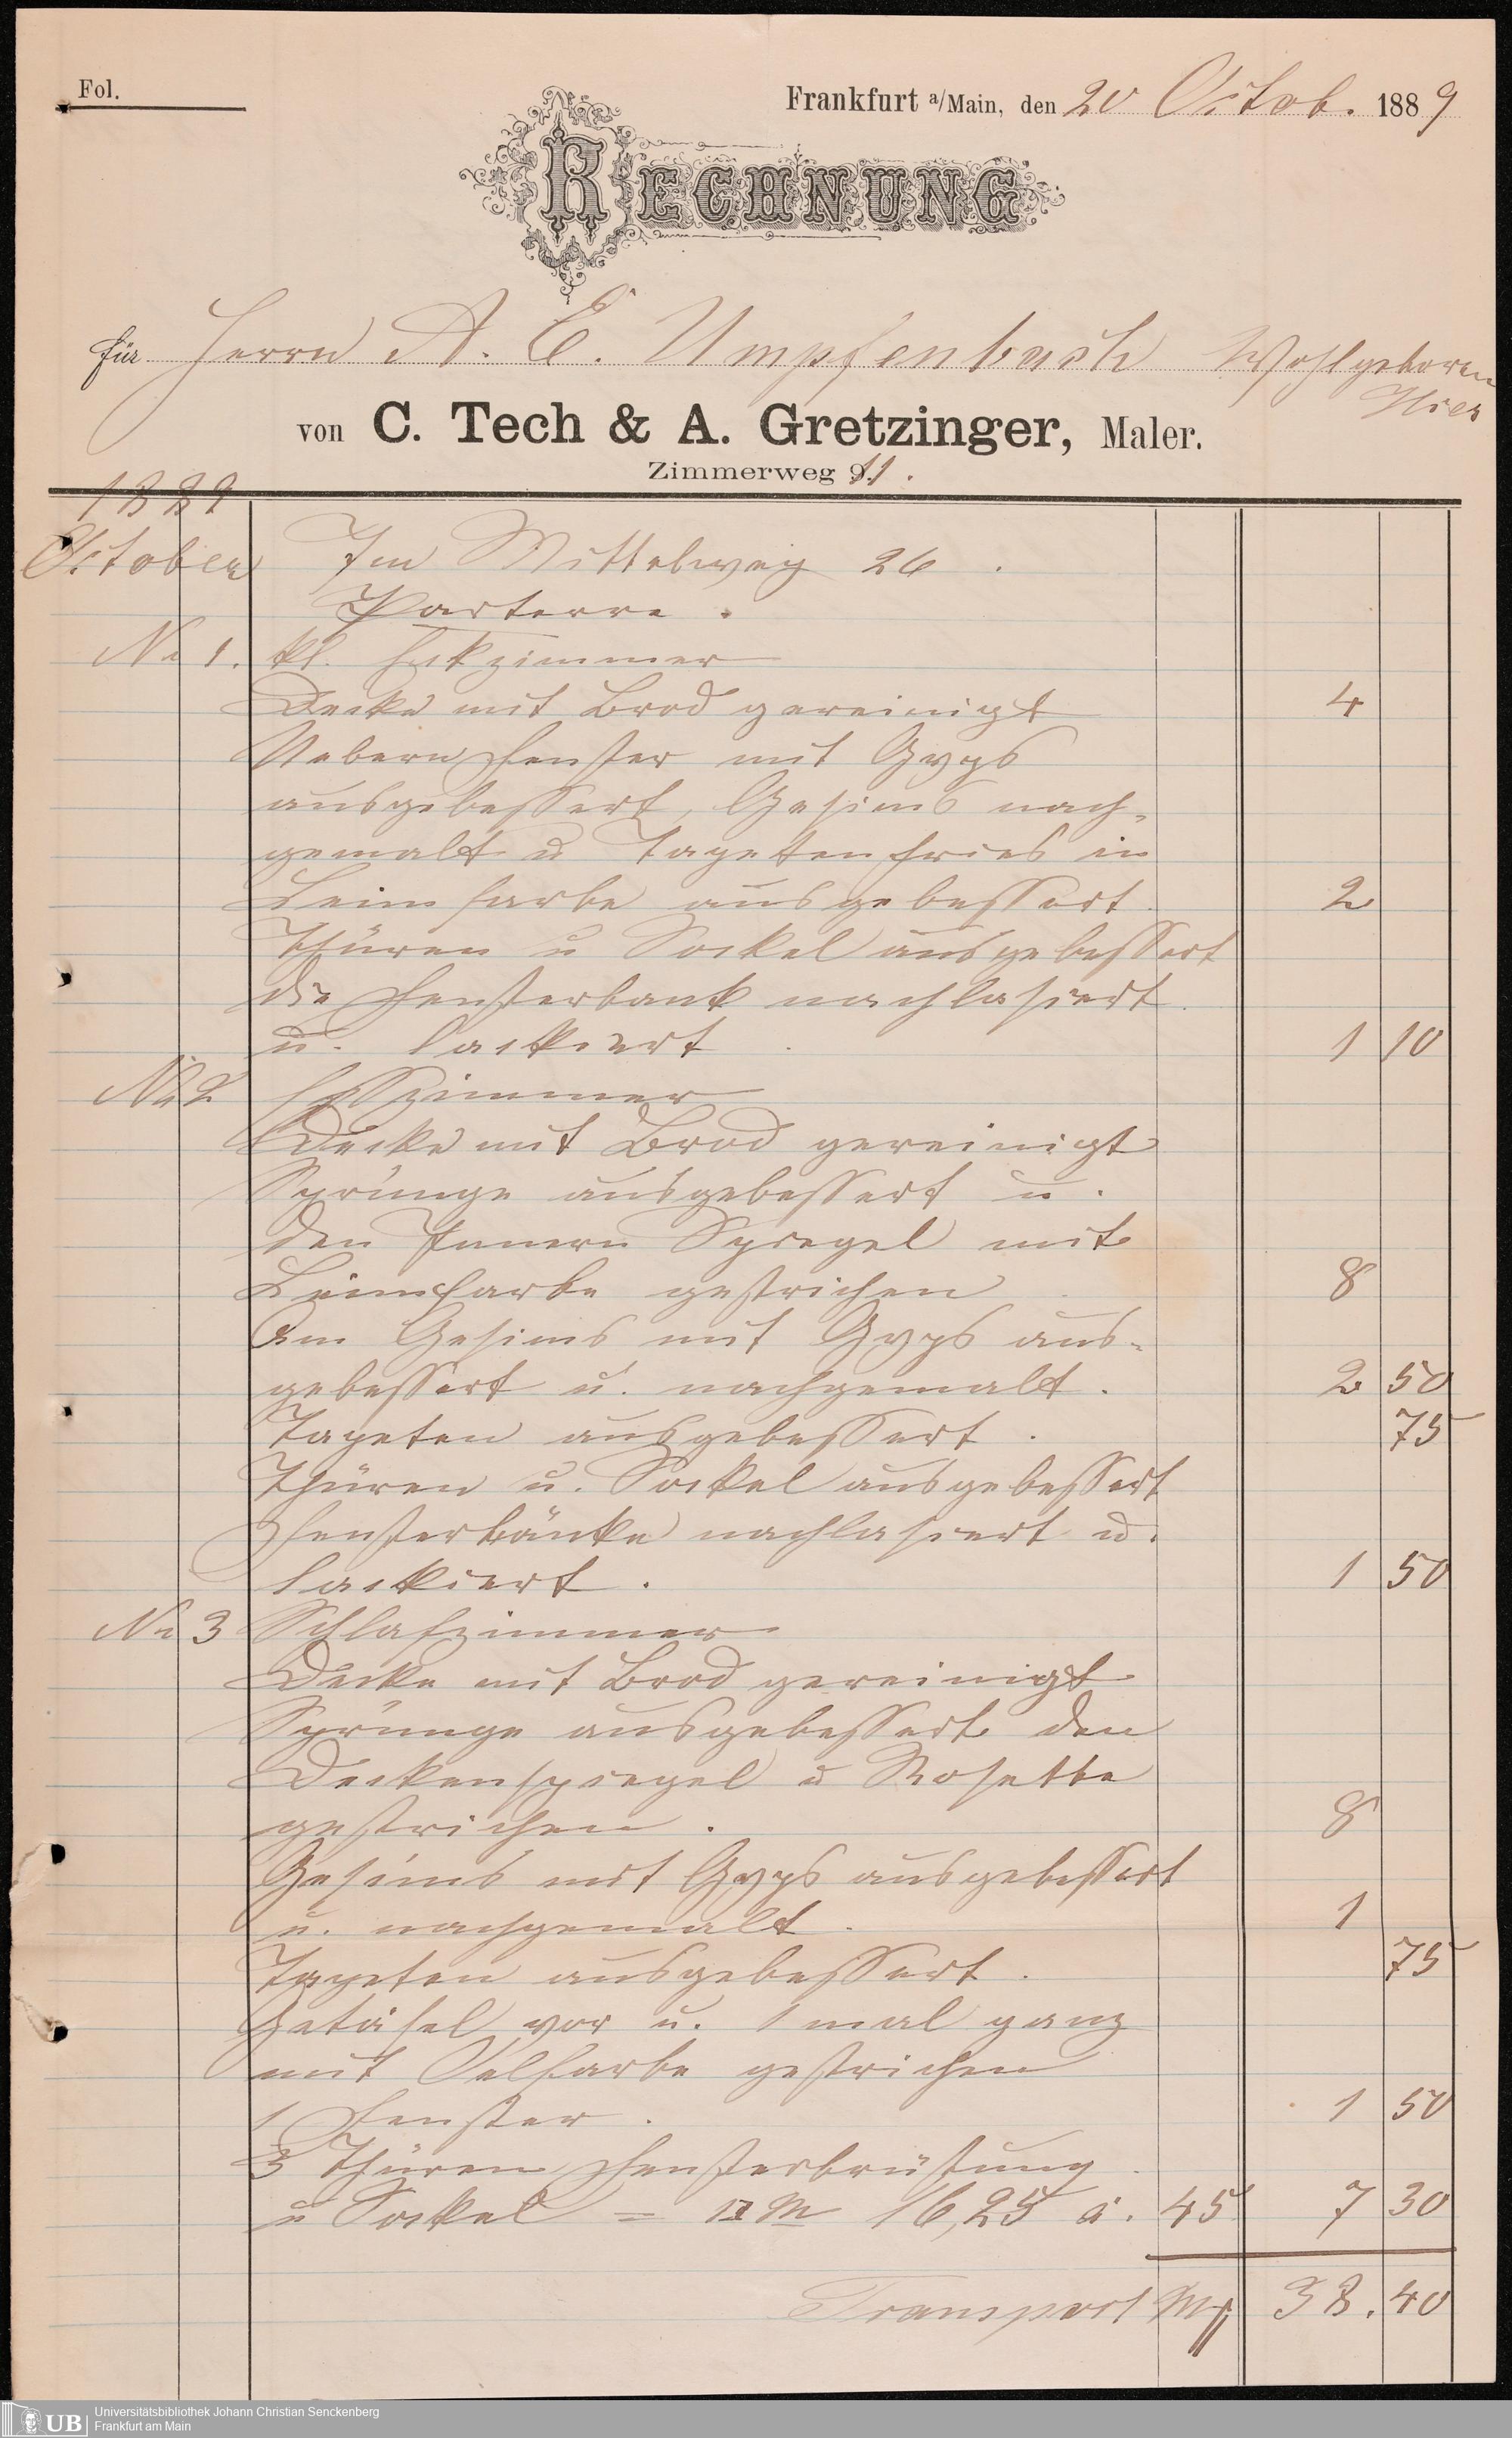 Fol.
Frankfurt a/Main, den 20 Octob. 1889
RECHNUNG
für Herrn A. E. Umpfenbach Wohlgeboren
Hier
von C. Tech & A. Gretzinger, Maler.
Zimmerweg 11.
1889
October Im Mittelweg 26.
Parterre.
No 1. kl. Eckzimmer
Decke mit Brod gereinigt 4
Uebern Fenster mit Gyps
ausgebessert, Gesims nach-
gemalt u Tapetenfries in
Leimfarbe ausgebessert. 2
Thüren u Sockel ausgebessert
die Fensterbank nachlasiert
u. lackiert. 1 10
No 2 Esszimmer
Decke mit Brod gereinigt
Sprünge ausgebessert u.
den Innern Spiegel mit
Leimfarbe gestrichen. 8
Am Gesims mit Gyps aus-
gebessert u. nachgemalt. 2 50
Tapeten ausgebessert. 75
Thüren u. Sockel ausgebessert
Fensterbänke nachlasiert u.
lackiert. 1 50
No 3 Schlafzimmer
Decke mit Brod gereinigt
Sprünge ausgebessert den
Deckenspiegel u Rosette
gestrichen. 8
Gesims mit Gyps ausgebessert
u. nachgemalt. 1
Tapeten ausgebessert. 75
Getäfel vor u. 1 mal ganz
mit Oelfarbe gestrichen
1 Fenster. 1 50
3 Thüren Fensterbrüstung
u Sockel = □ M 16,25 à. 45 7 30
Transport M 38.40
UB Universitätsbibliothek Johann Christian Senckenberg
Frankfurt am Main